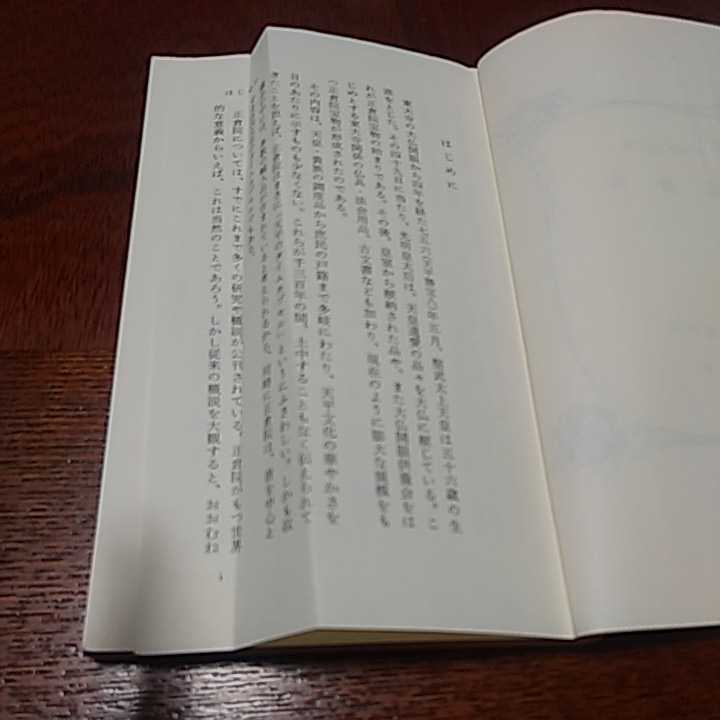 はじめに
東大寺の大仏開眼から四年を経た七五六(天平勝宝八)年五月、聖武太上天皇は五十六歳の生
涯をとじた。その四十九日に当たり、光明皇太后は、天皇遺愛の品々を大仏に献じている。こ
れが正倉院宝物の始まりである。その後、皇室から献納された品や、また大仏開眼供養会をは
じめとする東大寺関係の仏具・法会用品、古文書なども加わり、現在のように膨大な規模をも
つ正倉院宝物が形成されたのである。
その内容は、天皇・貴族の調度品から庶民の戸籍まで多岐にわたり、天平文化の華やかさを
目のあたりに示すものも少なくない。これらが千三百年の間、土中することもなく伝えられて
きたことを思えば、正倉院はまさに天平のタイムカプセルというにふさわしい。しかも
正倉院については、すでにこれまで多くの研究や概説が公刊されている。正倉院がもつ世界
的な意義からいえば、これは当然のことであろう。しかし従来の概説を大観すると、おおむね
はじ